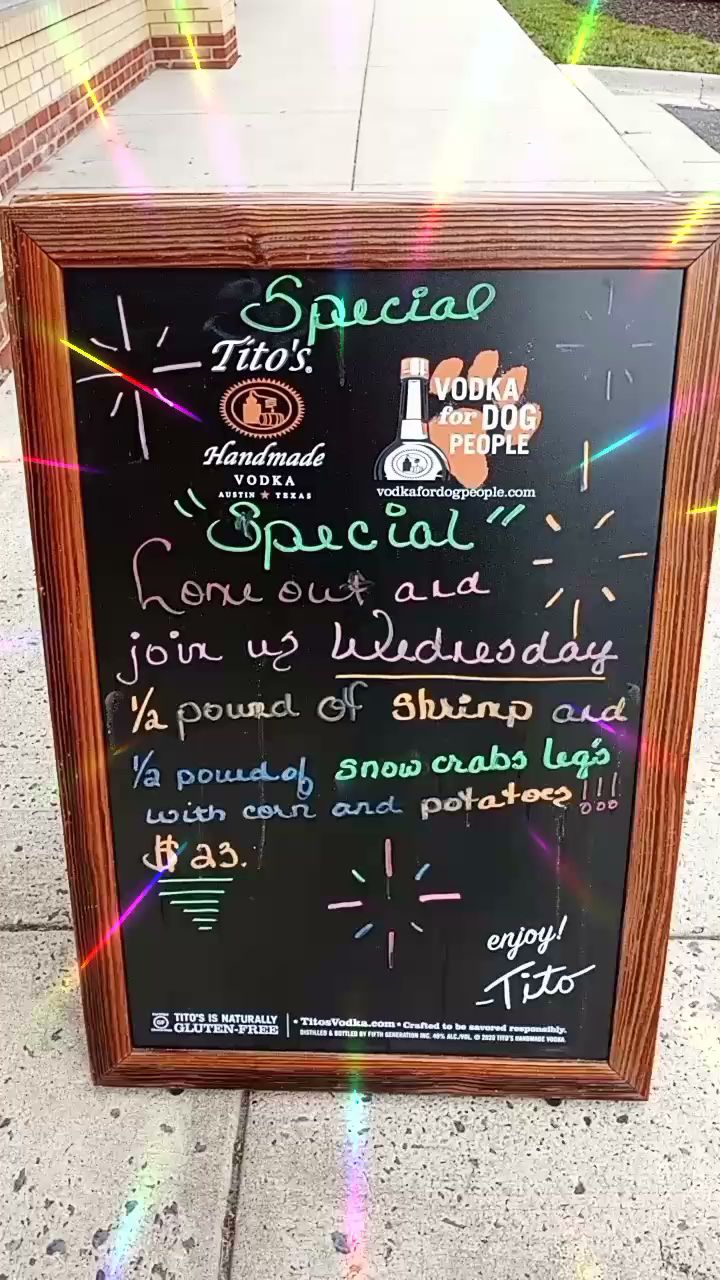 Special
Tito's.
Handmade
VODKA
AUSTIN ★ TEXAS
VODKA
for DOG
PEOPLE
vodkafordogpeople.com
"Special"
Come out and
join us Wednesday
1/2 pound of Shrimp and
1/2 pound of snow crabs leg's
with corn and potatoes!!!
$23.
enjoy!
-Tito
GF
TITO'S IS NATURALLY
GLUTEN-FREE
• TitosVodka.com • Crafted to be savored responsibly.
DISTILLED & BOTTLED BY FIFTH GENERATION INC. 40% ALC./VOL. © 2020 TITO'S HANDMADE VODKA.